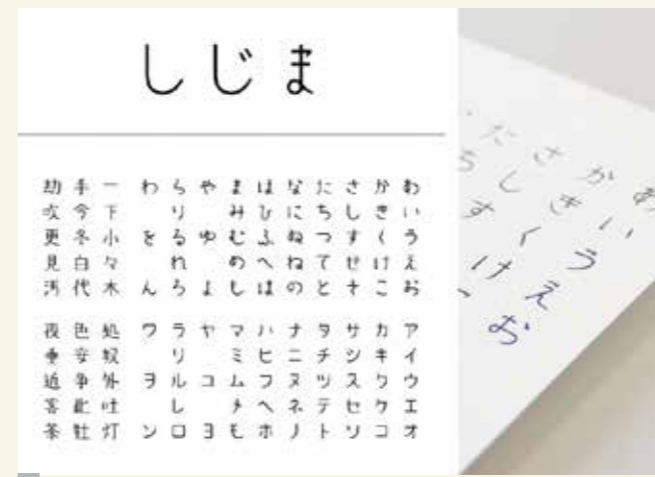 しじま
あいうえお
かきくけこ
さしすせそ
たちつてと
なにぬねの
はひふへほ
まみむめも
やゆよ
らりるれろ
わをん
一下小々木
手今冬白代
劫吹更見汚
アイウエオ
カキクケコ
サシスセソ
タチツテト
ナニヌネノ
ハヒフヘホ
マミムメモ
ヤユヨ
ラリルレロ
ワヲン
処外吐灯
色安争此牡
夜垂近茶
あいうえお
かきくけ
さしす
たち